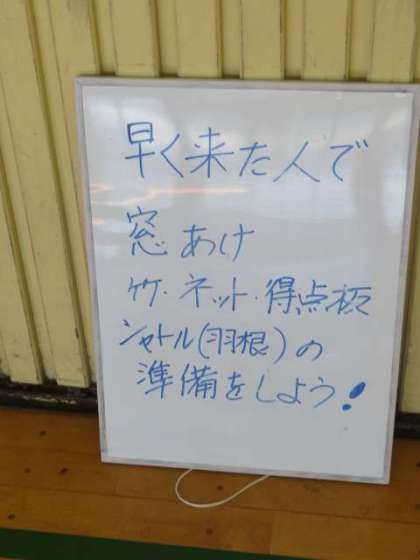 早く来た人で
窓あけ
竹・ネット・得点板
シャトル(羽根)の
準備をしよう!